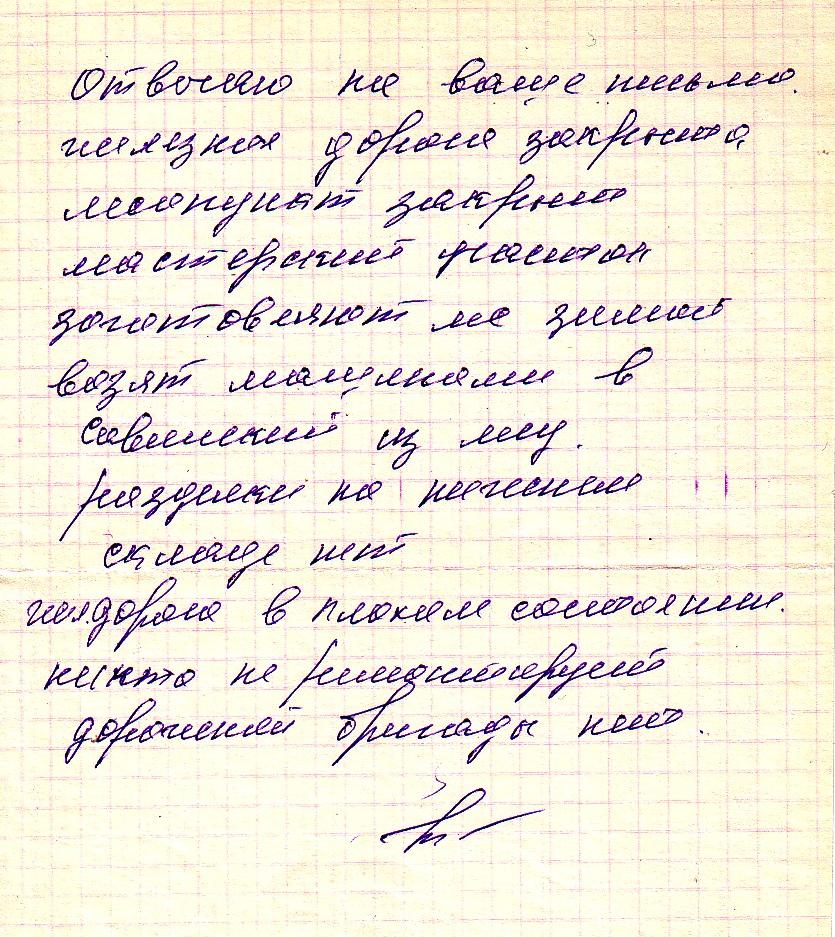 Отвечаю на ваше письмо.
железная дорога закрыта,
лесопункт закрыт
мастерский участок
заготовляют лес зимой
возят машинами в
Савинский из лесу.
разделки на нижнем
складе нет
жел.дорога в плохом состоянии.
никто не ремонтирует
дорожной бригады нет.